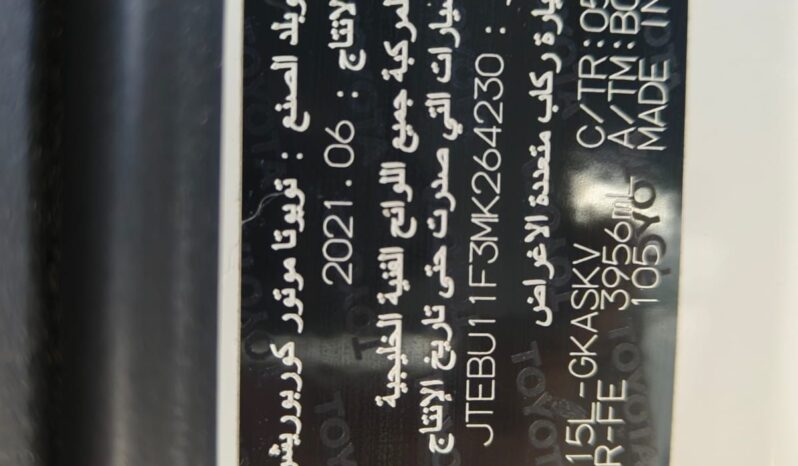 وبلد الصنع : تويوتا موتور كوربوريش
الانتاج : 2021.06
المركبة جميع اللوائح الفنية الخليجية
السيارات التي صدرت حتى تاريخ الإنتاج
: JTEBU11F3MK264230
سيارة ركاب متعددة الاغراض
15L-GKASKV C/TR:05
R-FE 3956mL A/TM:BC
105 MADE IN